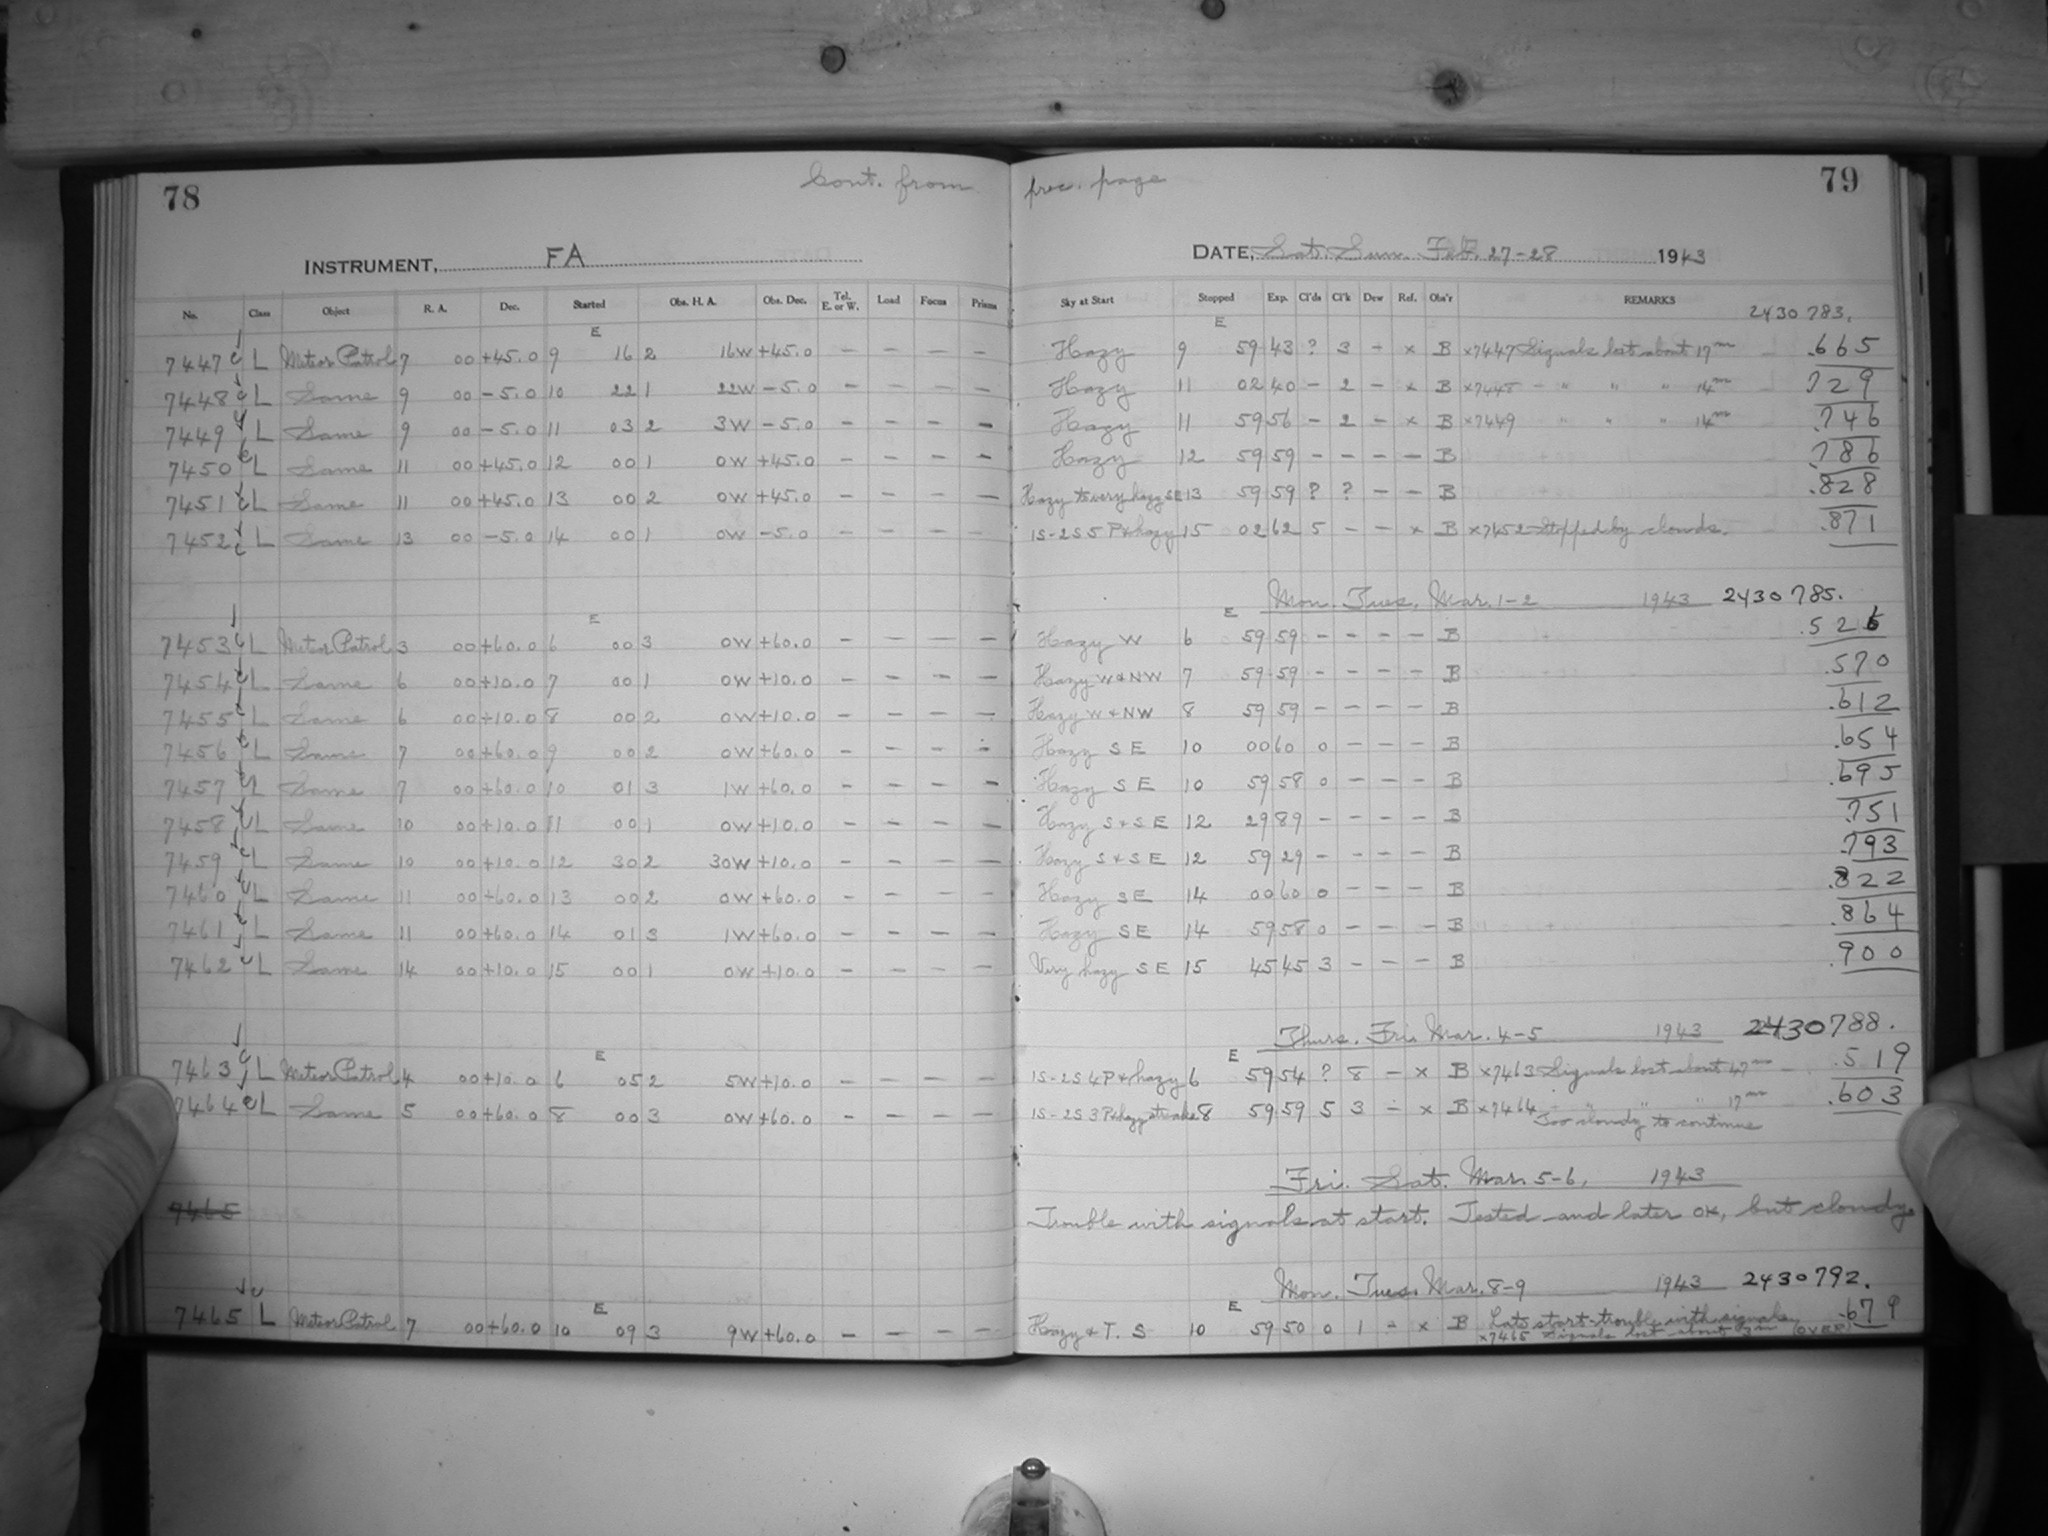 78 Cont. from prec. page 79
INSTRUMENT, FA DATE, Sat. Sun. Feb. 27-28 1943
No. Class Object R. A. Dec. Started Obs. H. A. Obs. Dec. Tel. E. or W. Load Focus Prisms Sky at Start Stopped Exp. Cl'ds Cl'k Dew Ref. Obs'r REMARKS 2430 783.
E E
7447 L Meteor Patrol 7 00 +45.0 9 16 2 16W +45.0 – – – – Hazy 9 59 43 ? 3 – x B x7447 Signals lost about 17m .665
7448 L Same 9 00 -5.0 10 22 1 22W -5.0 – – – – Hazy 11 02 40 – 2 – x B x7448 – " " " 14m 729
7449 L Same 9 00 -5.0 11 03 2 3W -5.0 – – – – Hazy 11 59 56 – 2 – x B x7449 " " " 14m .746
7450 L Same 11 00 +45.0 12 00 1 0W +45.0 – – – – Hazy 12 59 59 – – – – B .786
7451 L Same 11 00 +45.0 13 00 2 0W +45.0 – – – – Hazy to very hazy SE 13 59 59 ? ? – – B .828
7452 L Same 13 00 -5.0 14 00 1 0W -5.0 – – – – 1S-2S 5 P & hazy 15 02 62 5 – – x B x7452 Stopped by clouds. .871
Mon. Tues. Mar. 1-2 1943 2430 785.
E E
7453 L Meteor Patrol 3 00 +60.0 6 00 3 0W +60.0 – – – – Hazy W 6 59 59 – – – – B .526
7454 L Same 6 00 +10.0 7 00 1 0W +10.0 – – – – Hazy W & NW 7 59 59 – – – – B .570
7455 L Same 6 00 +10.0 8 00 2 0W +10.0 – – – – Hazy W & NW 8 59 59 – – – – B .612
7456 L Same 7 00 +60.0 9 00 2 0W +60.0 – – – – Hazy SE 10 00 60 0 – – – B .654
7457 L Same 7 00 +60.0 10 01 3 1W +60.0 – – – – Hazy SE 10 59 58 0 – – – B .695
7458 L Same 10 00 +10.0 11 00 1 0W +10.0 – – – – Hazy S & SE 12 29 89 – – – – B .751
7459 L Same 10 00 +10.0 12 30 2 30W +10.0 – – – – Hazy S & SE 12 59 29 – – – – B .793
7460 L Same 11 00 +60.0 13 00 2 0W +60.0 – – – – Hazy SE 14 00 60 0 – – – B .822
7461 L Same 11 00 +60.0 14 01 3 1W +60.0 – – – – Hazy SE 14 59 58 0 – – – B .864
7462 L Same 14 00 +10.0 15 00 1 0W +10.0 – – – – Very hazy SE 15 45 45 3 – – – B .900
Thurs. Fri. Mar. 4-5 1943 2430788.
E E
7463 L Meteor Patrol 4 00 +10.0 6 05 2 5W +10.0 – – – – 1S-2S 4P & hazy 6 59 54 ? 8 – x B x7463 Signals lost about 47m .519
7464 L Same 5 00 +60.0 8 00 3 0W +60.0 – – – – 1S-2S 3 P & hazy streaks 8 59 59 5 3 – x B x7464 " " " 17m .603
Too cloudy to continue
Fri. Sat. Mar. 5-6, 1943
7465 Trouble with signals at start. Tested and later OK, but cloudy.
Mon. Tues. Mar. 8-9 1943 2430792.
E E
7465 L Meteor Patrol 7 00 +60.0 10 09 3 9W +60.0 – – – – Hazy & T. S 10 59 50 0 1 – x B Late start-trouble with signals .679
x7465 Signals lost about 3m (OVER)